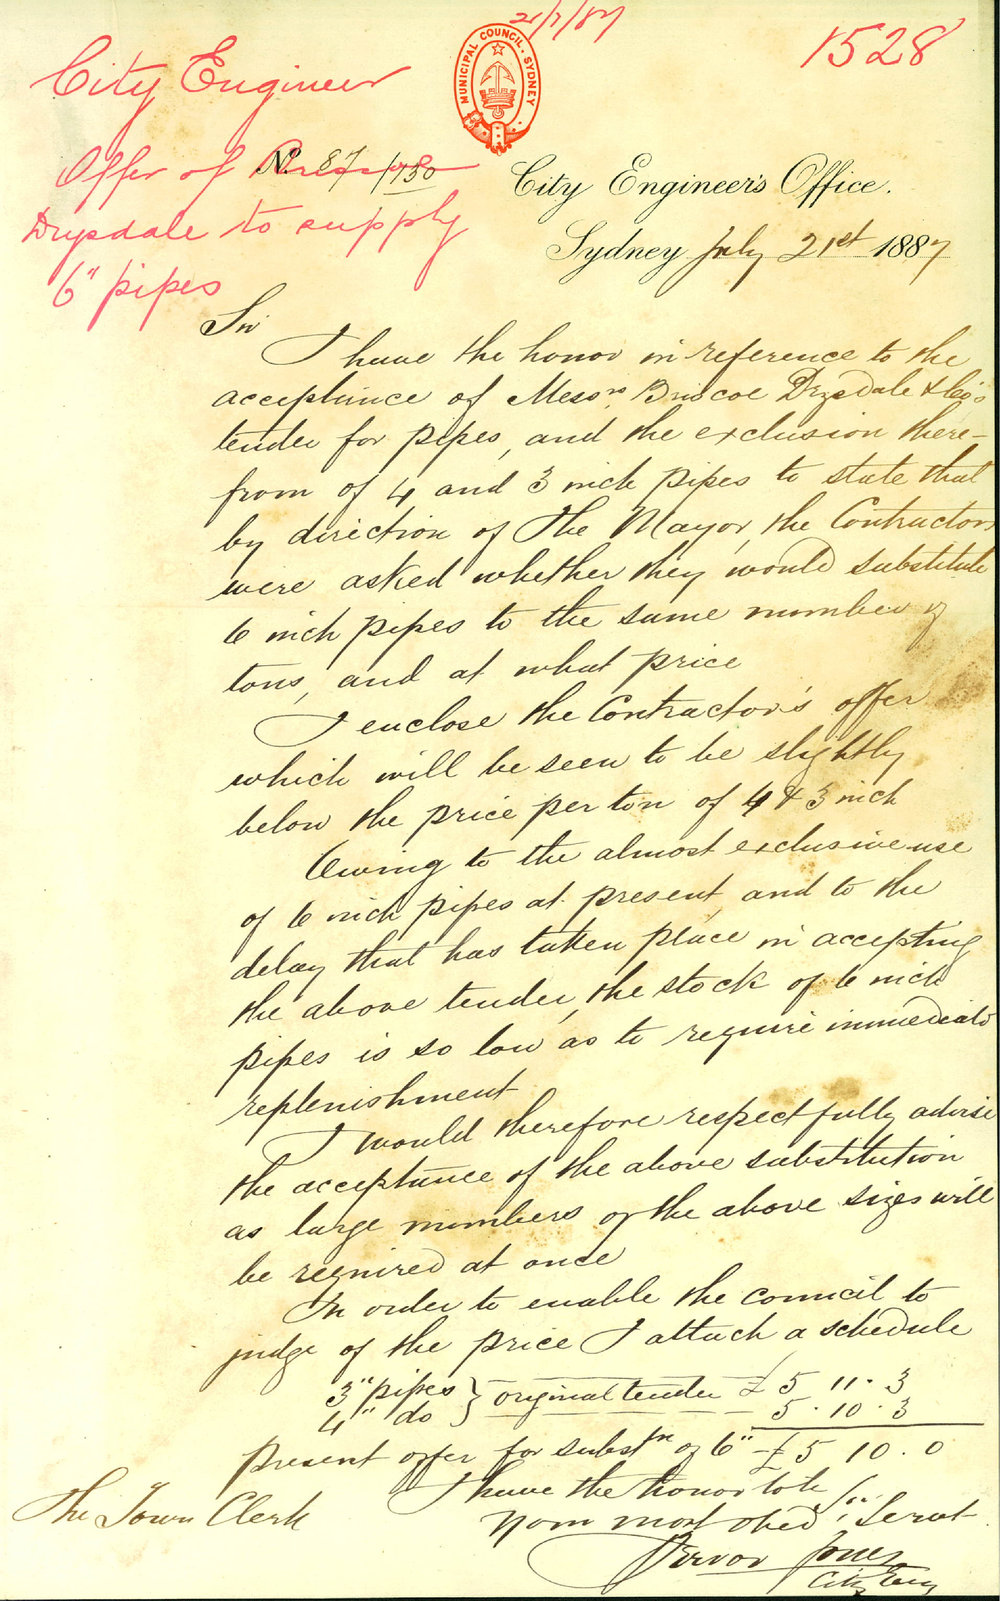 21/7/87
1528
MUNICIPAL COUNCIL. SYDNEY
City Engineer
Offer of Briscoe
Drysdale to supply
6" pipes
No. 87/1150
City Engineer's Office.
Sydney July 21st 1887
Sir
I have the honor in reference to the
acceptance of Messrs. Briscoe Drysdale & Co's
tender for pipes, and the exclusion there-
from of 4 and 3 inch pipes to state that
by direction of The Mayor, the Contractors
were asked whether they would substitute
6 inch pipes to the same number of
tons, and at what price
I enclose the Contractor's offer
which will be seen to be slightly
below the price per ton of 4 & 3 inch
Owing to the almost exclusive use
of 6 inch pipes at present, and to the
delay that has taken place in accepting
the above tender, the stock of 6 inch
pipes is so low as to require immediate
replenishment
I would therefore respectfully advise
the acceptance of the above substitution
as large numbers of the above sizes will
be required at once
In order to enable the council to
judge of the price I attach a schedule
3" pipes } original tender £5 11. 3
4" do } 5. 10. 3
present offer for substn of 6" £5 10. 0
I have the honor to be
Sir
Your most obed Servt
Jones
City Eng
The Town Clerk